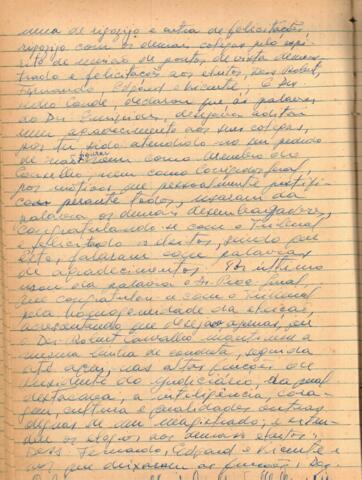 uma de regozijo e outra de felicitações
regozijo com os demais colegas pelo espí-
rito de união de pontos de vista demons-
trado e felicitações aos eleitos, Dess. Robert,
Fernando, Edgard e Vicente; O Des.
Conde, declarou que às palavras
do Des. desejava aditar
um agradecimento aos seus colegas,
por ter sido atendido no seu pedido
de como Membro do
Conselho, bem como Corregedor Geral
por motivos que pessoalmente justifi-
cou perante todos, usaram da
palavra os demais desembargadores,
congratulando-se com o Tribunal
e felicitando os eleitos, sendo que
estes, falaram com palavras
de agradecimentos. Por último
usou da palavra o Dr. Proc. Geral,
que congratulou-se com o Tribunal
pela homogeneidade da eleição,
acrescentando que desejava apenas, que
o Des. Robert Carvalho mantivesse a
mesma linha de conduta, seguida
até aqui, nas altas funções de
Presidente do Judiciário, da qual
destacava, a inteligência, cora-
gem, cultura e qualidades outras
dignas de um magistrado; e esten-
deu os elogios aos demais eleitos:
Dess. Fernando, Edgard e Vicente e
aos que deixaram as funções, Des.